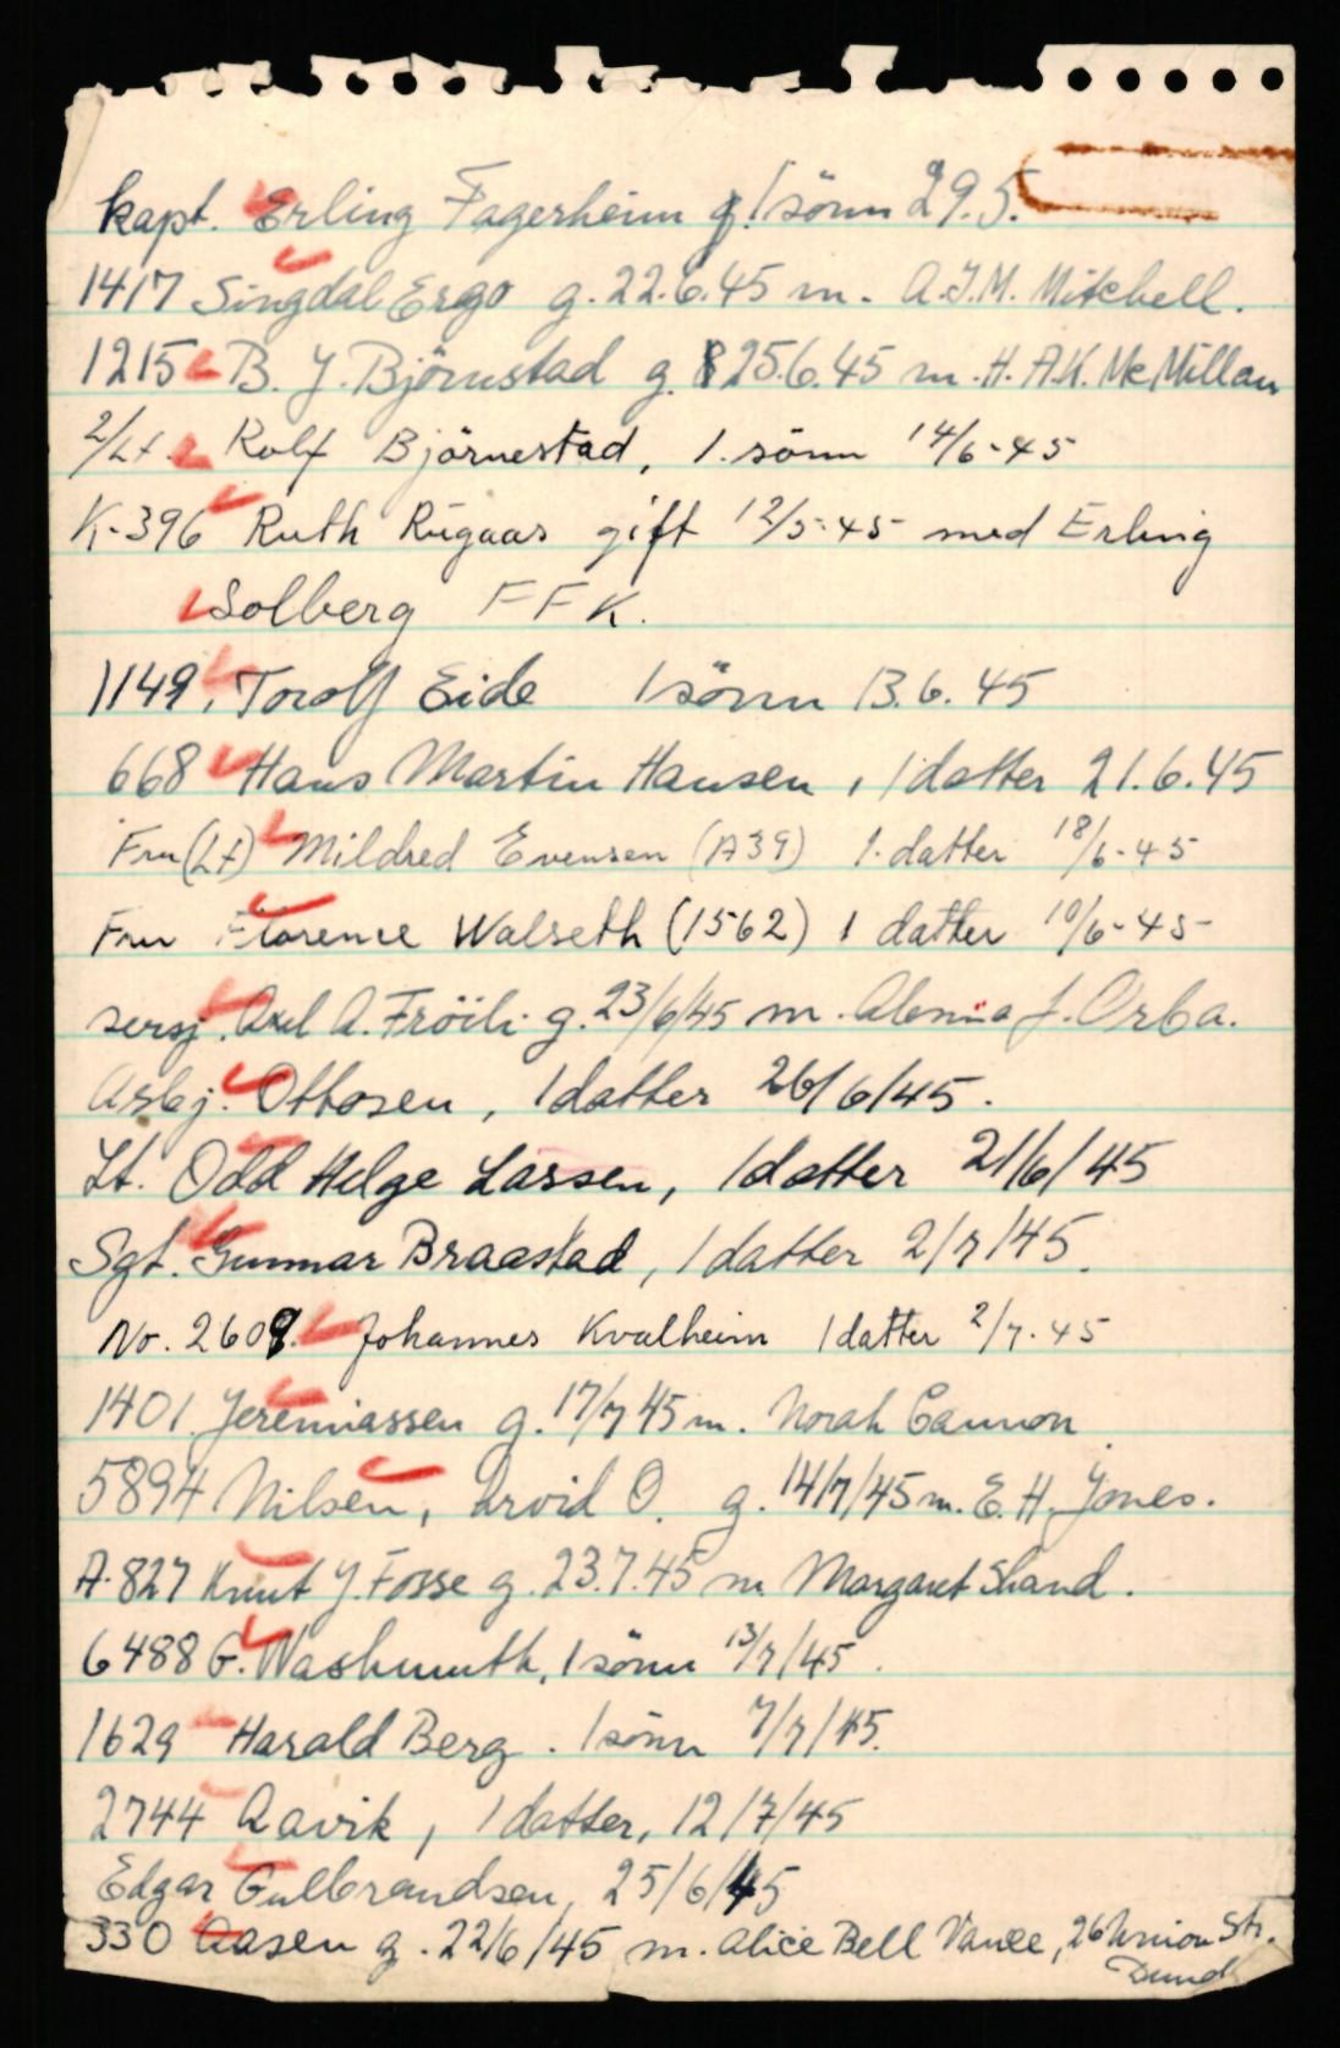 kapt. Erling Fagerheim 1 sönn 29.5.
1417 Singdal Ergo g. 22.6.45 m. A.J.M. Mitchell.
1215 B. J. Björnstad g. 25.6.45 m. H. A.K. McMillan
2/Lt. Rolf Björnestad, 1. sönn 14/6-45
K-396 Ruth Riigaas gift 12/5-45 med Erling
Solberg FFK.
1149, Torolf Eide 1 sönn 13.6.45
668 Hans Martin Hansen, 1 datter 21.6.45
Fru (Lt) Mildred Evensen (A39) 1. datter 18/6-45
Fru Florence Walseth (1562) 1 datter 10/6-45
sersj. Axel A. Fröili g. 23/6/45 m. J. Orba.
Asbj. Ottosen, 1 datter 26/6/45.
Lt. Odd Helge Lassen, 1 datter 21/6/45
Sgt. Gunnar Braastad, 1 datter 2/7/45.
No. 2609. Johannes Kvalheim 1 datter 2/7.45
1401 Jeremiassen g. 17/7 45 m. Norah Cannon
5894 Nilsen, Arvid O. g. 14/7/45 m. E. H. Jones.
A-827 Knut J. Fosse g. 23.7.45 m Margaret Shand.
6488 G. Washmuth, 1 sönn 13/7/45.
1629 Harald Berg. 1 sönn 7/7/45.
2744 Aavik, 1 datter, 12/7/45
Edgar Gulbrandsen, 25/6/45
330 Aasen g. 22/6/45 m. Alice Bell Vance, 26 Union Str.
Dund